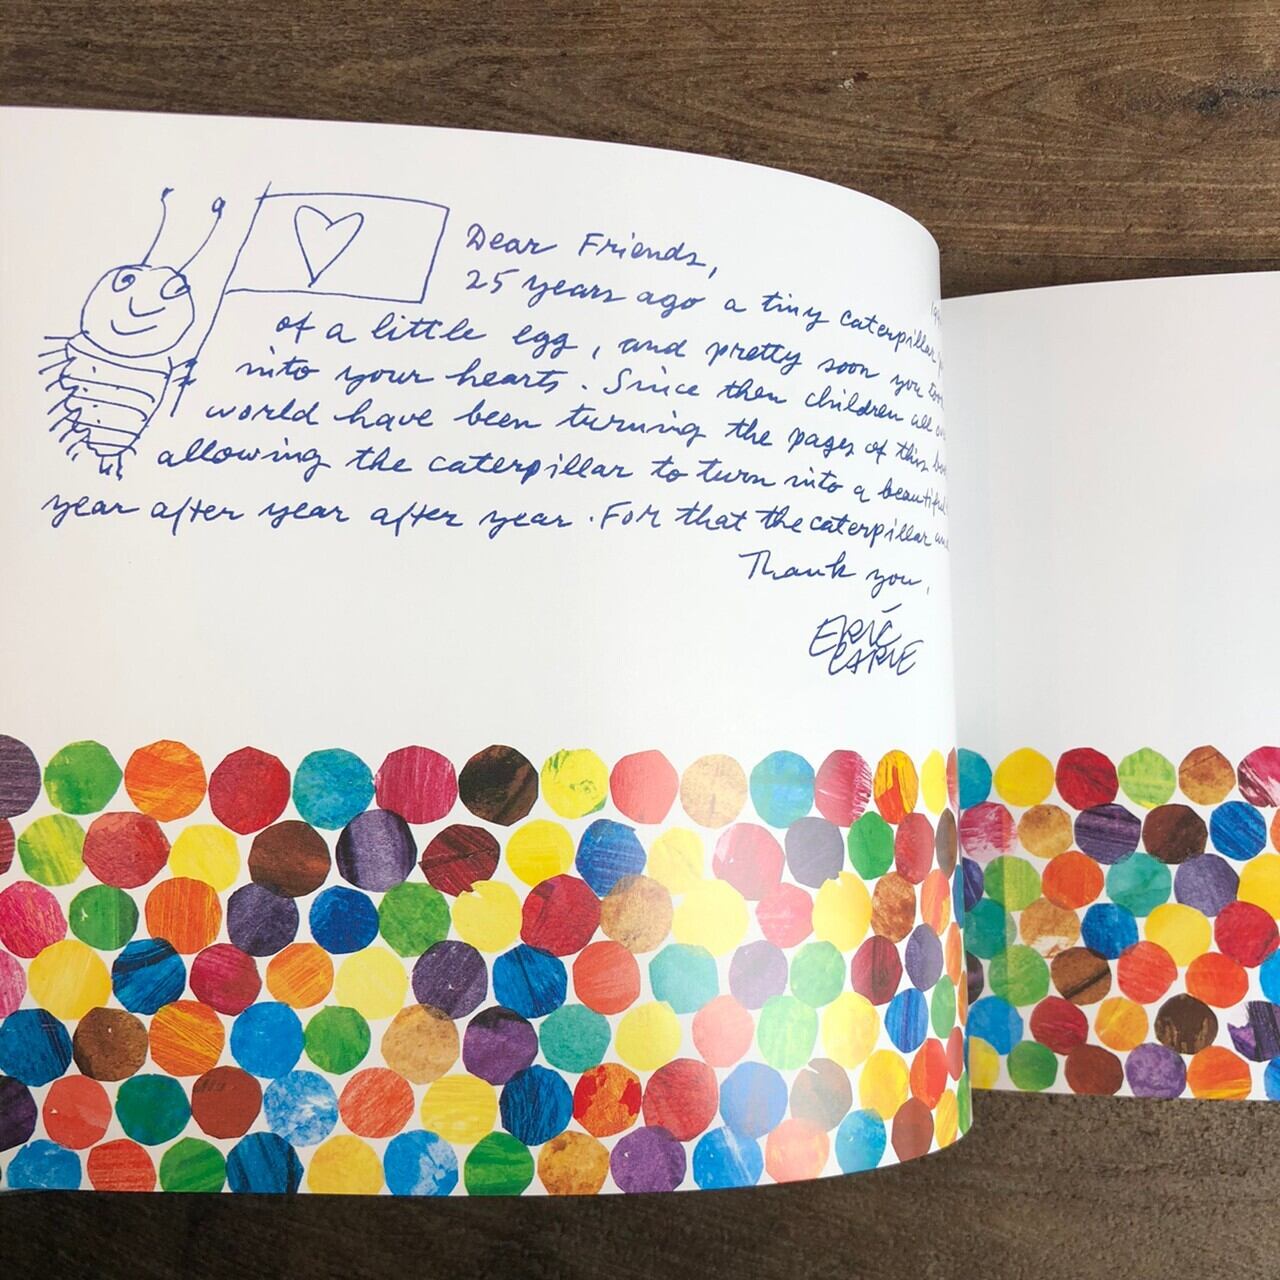 Dear Friends,
25 years ago a tiny caterpillar
of a little egg, and pretty soon you took
into your hearts. Since then children all
world have been turning the pages of this
allowing the caterpillar to turn into a
year after year after year. For that the caterpillar
Thank you,
ERIC
CARLE